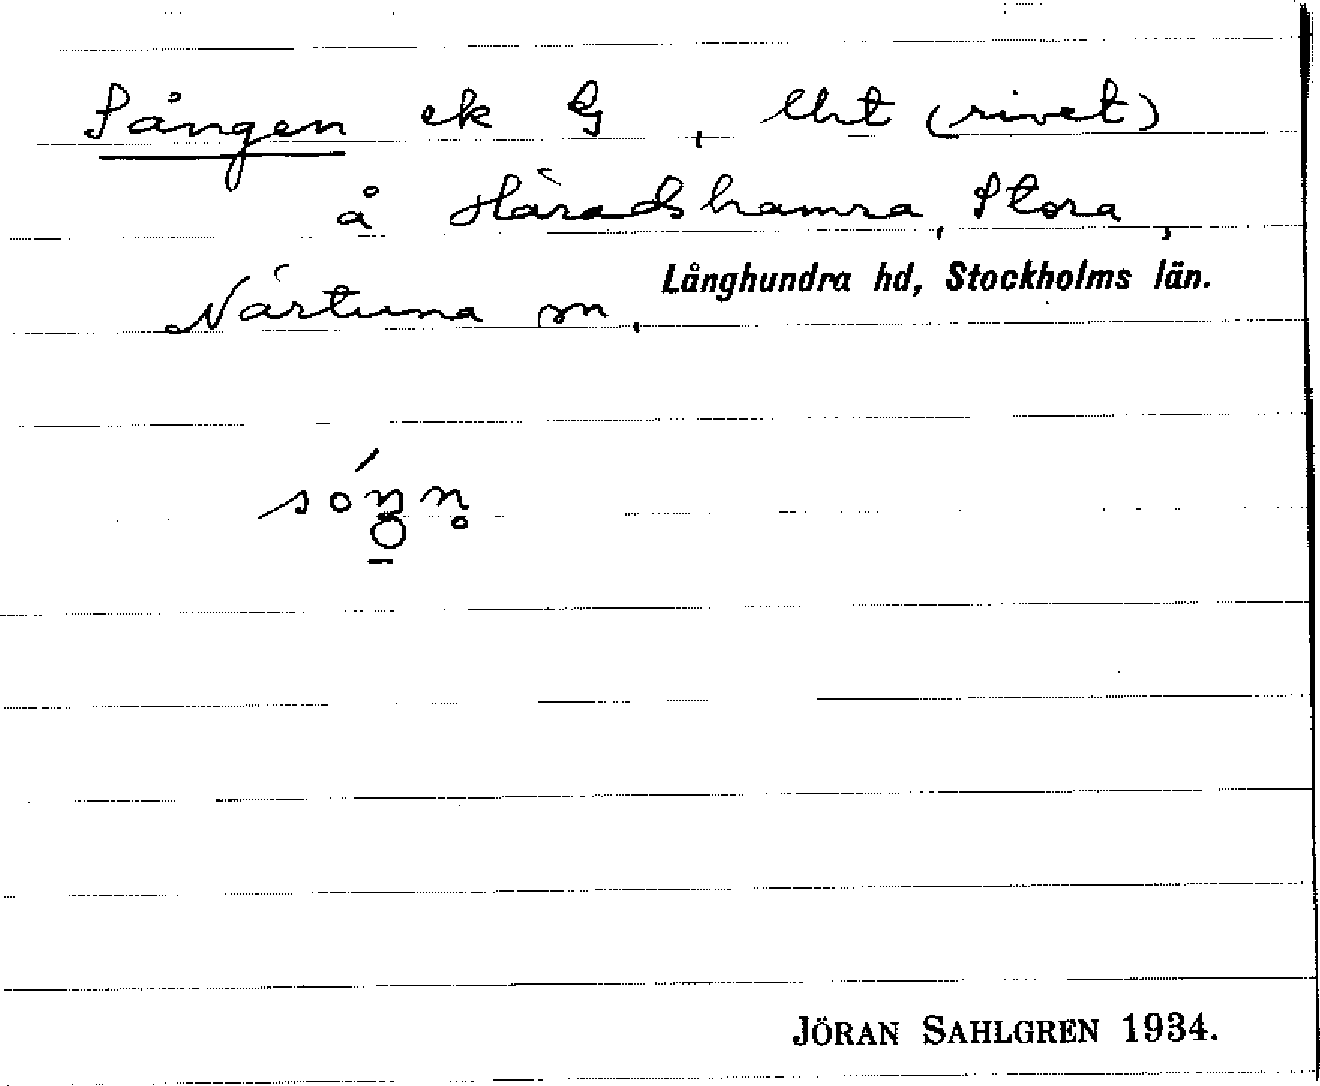 Sången ek G, Uht (rivet)
å Häradshamra, Stora,
Närtuna sn, Långhundra hd, Stockholms län.
JÖRAN SAHLGREN 1934.